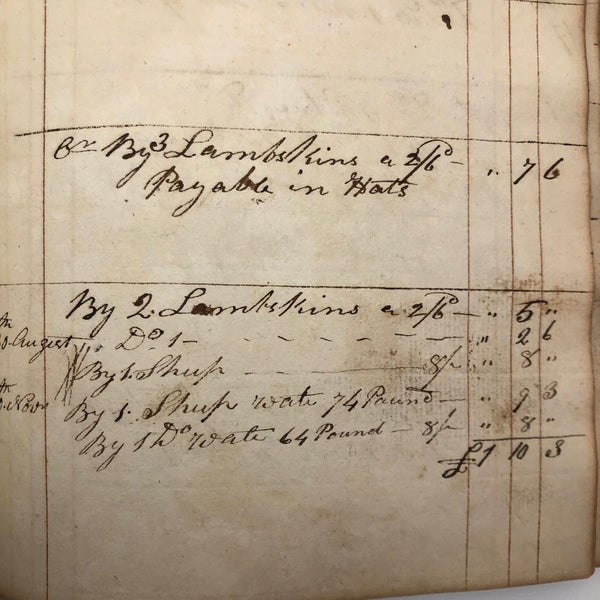 Cr By 3 Lambskins a 2/6d — " 7 6
Payable in Hats
By 2 Lambskins a 2/6d — " 5 "
August Do 1 — " 2 6
By 1 Shup — 8/ — " 8 "
Novr By 1 Shup wate 74 Pound — " 9 3
By 1 Do wate 64 Pound — 8/ " 8 "
£1 10 3